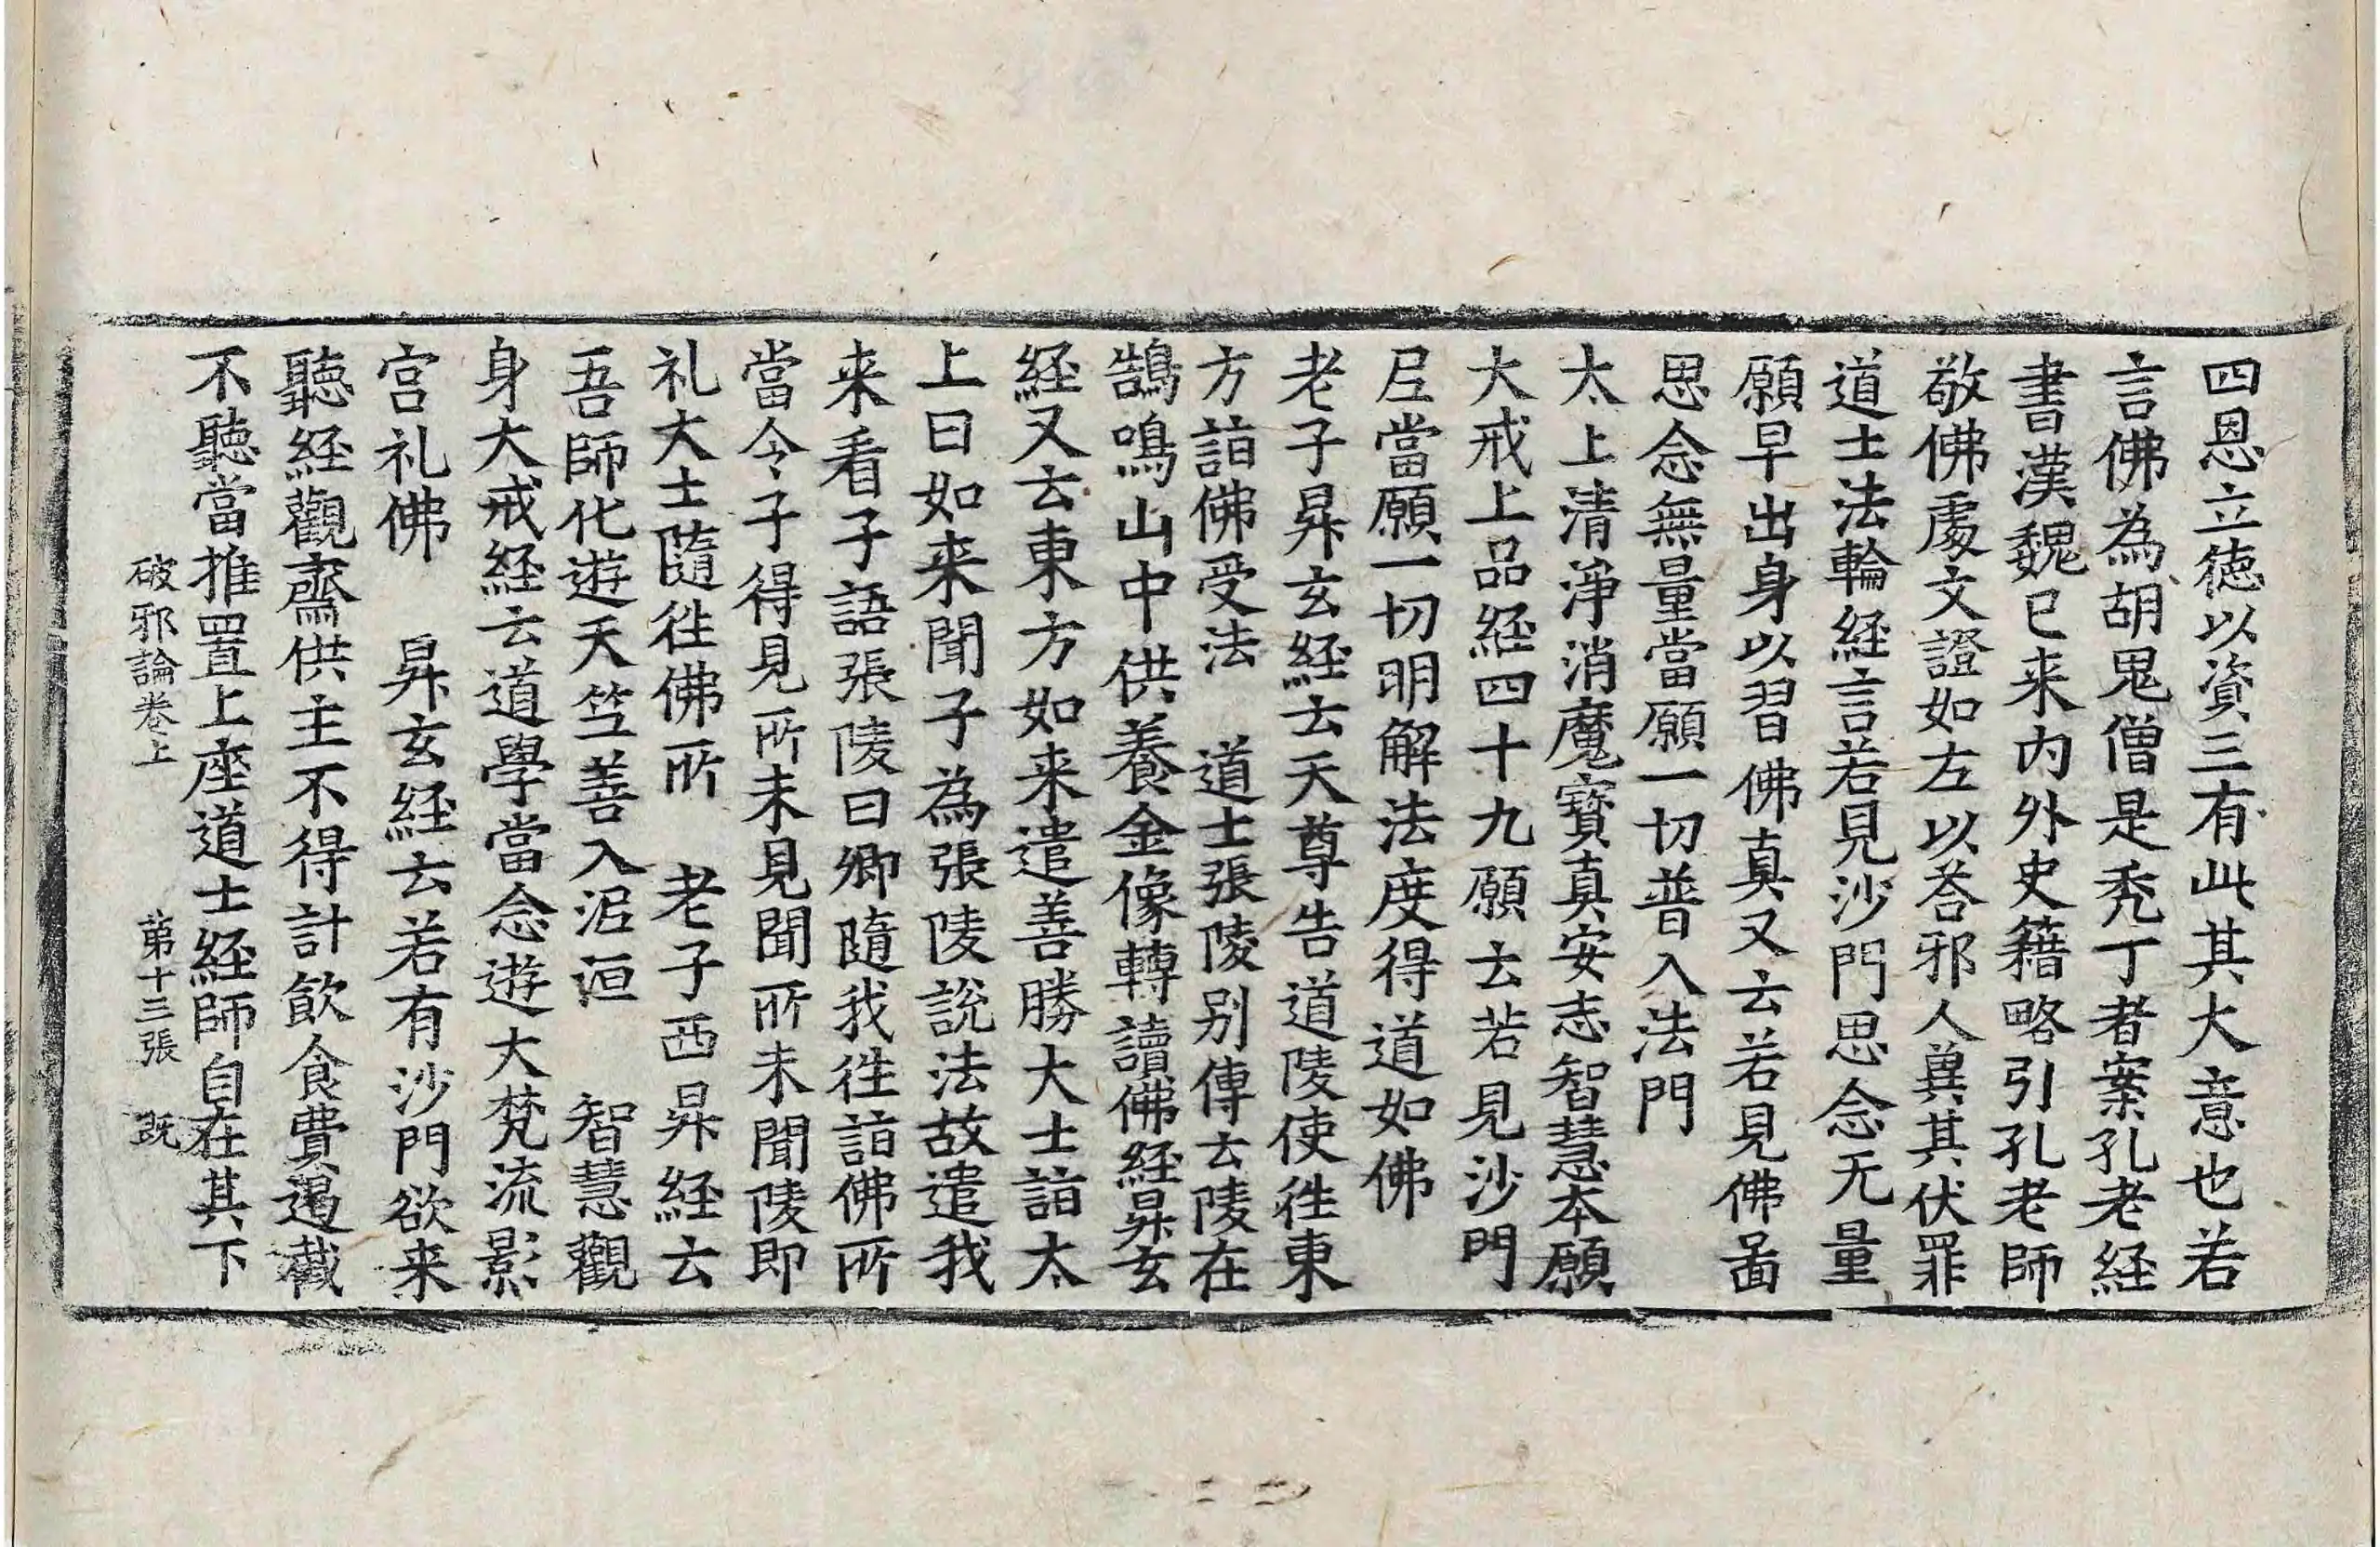 四恩立徳以資三有此其大意也若
言佛為胡鬼僧是秃丁者案孔老経
書漢魏已来内外史籍略引孔老師
敬佛處文證如左以荅邪人兾其伏罪
道士法輪経言若見沙門思念无量
願早出身以習佛真又云若見佛啚
思念無量當願一切普入法門
太上清淨消魔寶真安志智慧本願
大戒上品経四十九願去若見沙門
𡰱當願一切明解法度得道如佛
老子昇玄経去天尊告道陵使徃東
方詣佛受法　道士張陵别傳去陵在
鵠鳴山中供養金像轉讀佛経昇玄
経又去東方如来遣善勝大士詣太
上曰如来聞子為張陵説法故遣我
来看子語張陵曰卿隨我徃詣佛所
當令子得見所未見聞所未聞陵即
礼大士隨徃佛所　老子西昇経云
吾師化遊天笁善入泥洹　智慧觀
身大戒経云道學當念遊大梵流影
宫礼佛　昇玄経去若有沙門欲来
聽経觀齋供主不得計飲食費遏截
不聽當推置上座道士経師自在其下
破邪論卷上　苐十三張　既